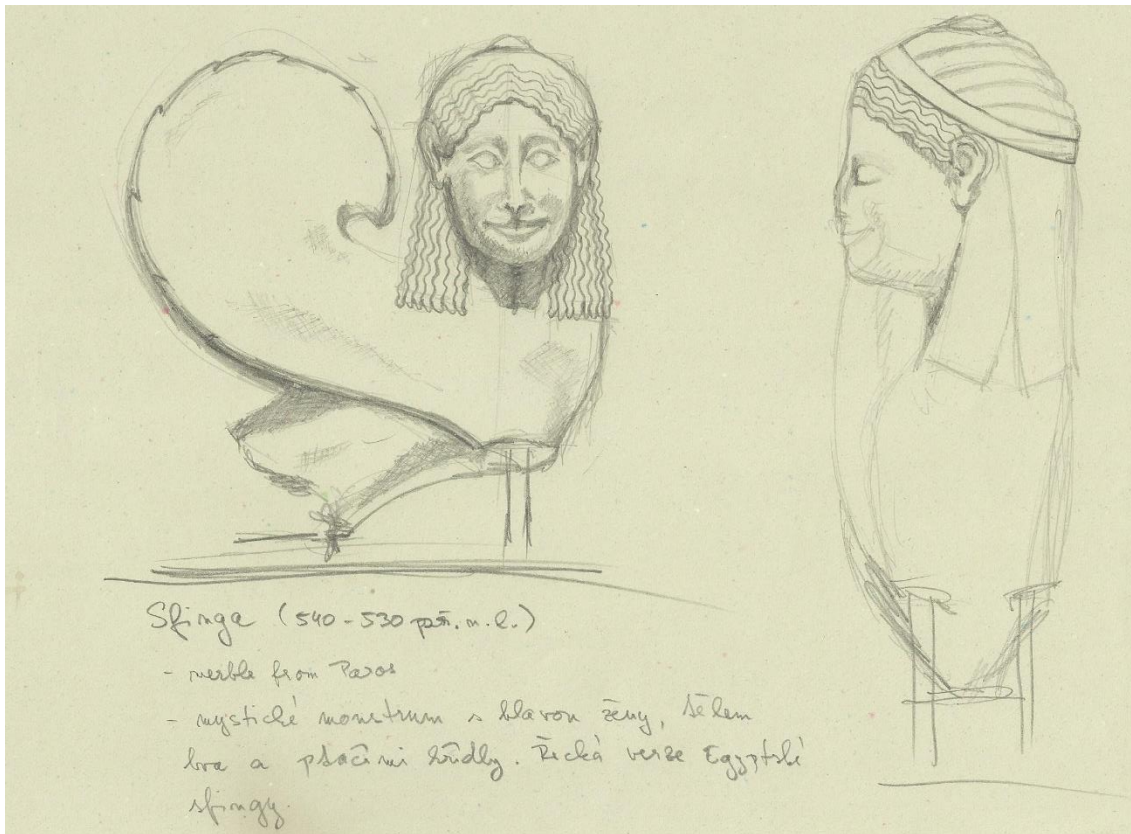 Sfinga (540-530 př. n. l.)
- merble from Paros
- mystické monstrum s hlavou ženy, tělem
lva a ptačími křídly. Řecká verze Egyptské
sfingy.